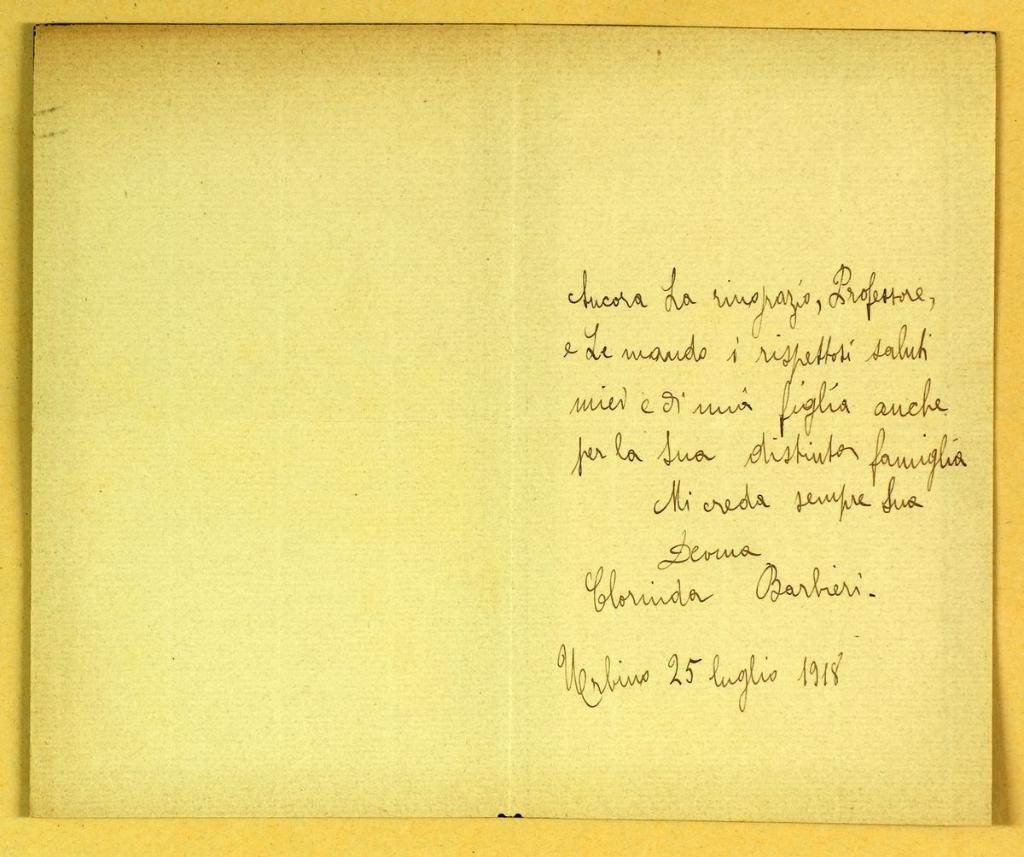 Ancora La ringrazio, Professore,
e Le mando i rispettosi saluti
miei e di mia figlia anche
per la Sua distinta famiglia
Mi creda sempre Sua
Dev.ma
Clorinda Barbieri.
Urbino 25 luglio 1918